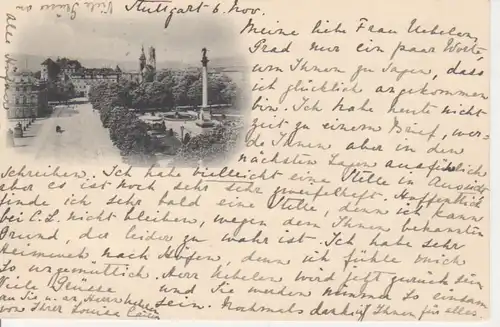 Stuttgart 6. Nov.
Viele Grüsse an
alle
Meine liebe Frau Uebelen,
Grad nur ein paar Worte,
um Ihnen zu sagen, dass
ich glücklich angekommen
bin. Ich habe heute nicht
zeit zu einem Brief, wer-
de Ihnen aber in den
nächsten Tagen ausführlich
schreiben. Ich habe vielleicht eine Stelle in Aussicht
aber es ist noch sehr sehr zweifelhaft. Hoffentlich
finde ich sehr bald eine Stelle, denn ich kann
bei C.L. nicht bleiben, wegen dem Ihnen bekannten
Grund, der leider zu wahr ist. Ich habe sehr
Heimweh nach denn ich fühle mich
so ungemütlich. Herr Uebelen wird jetzt zurück sein
Viele Grüsse und Sie werden nimme so einsam
an Sie u. an Herr Uebelen sein. Nochmals danke Ihnen für alles.
von Ihrer Louise